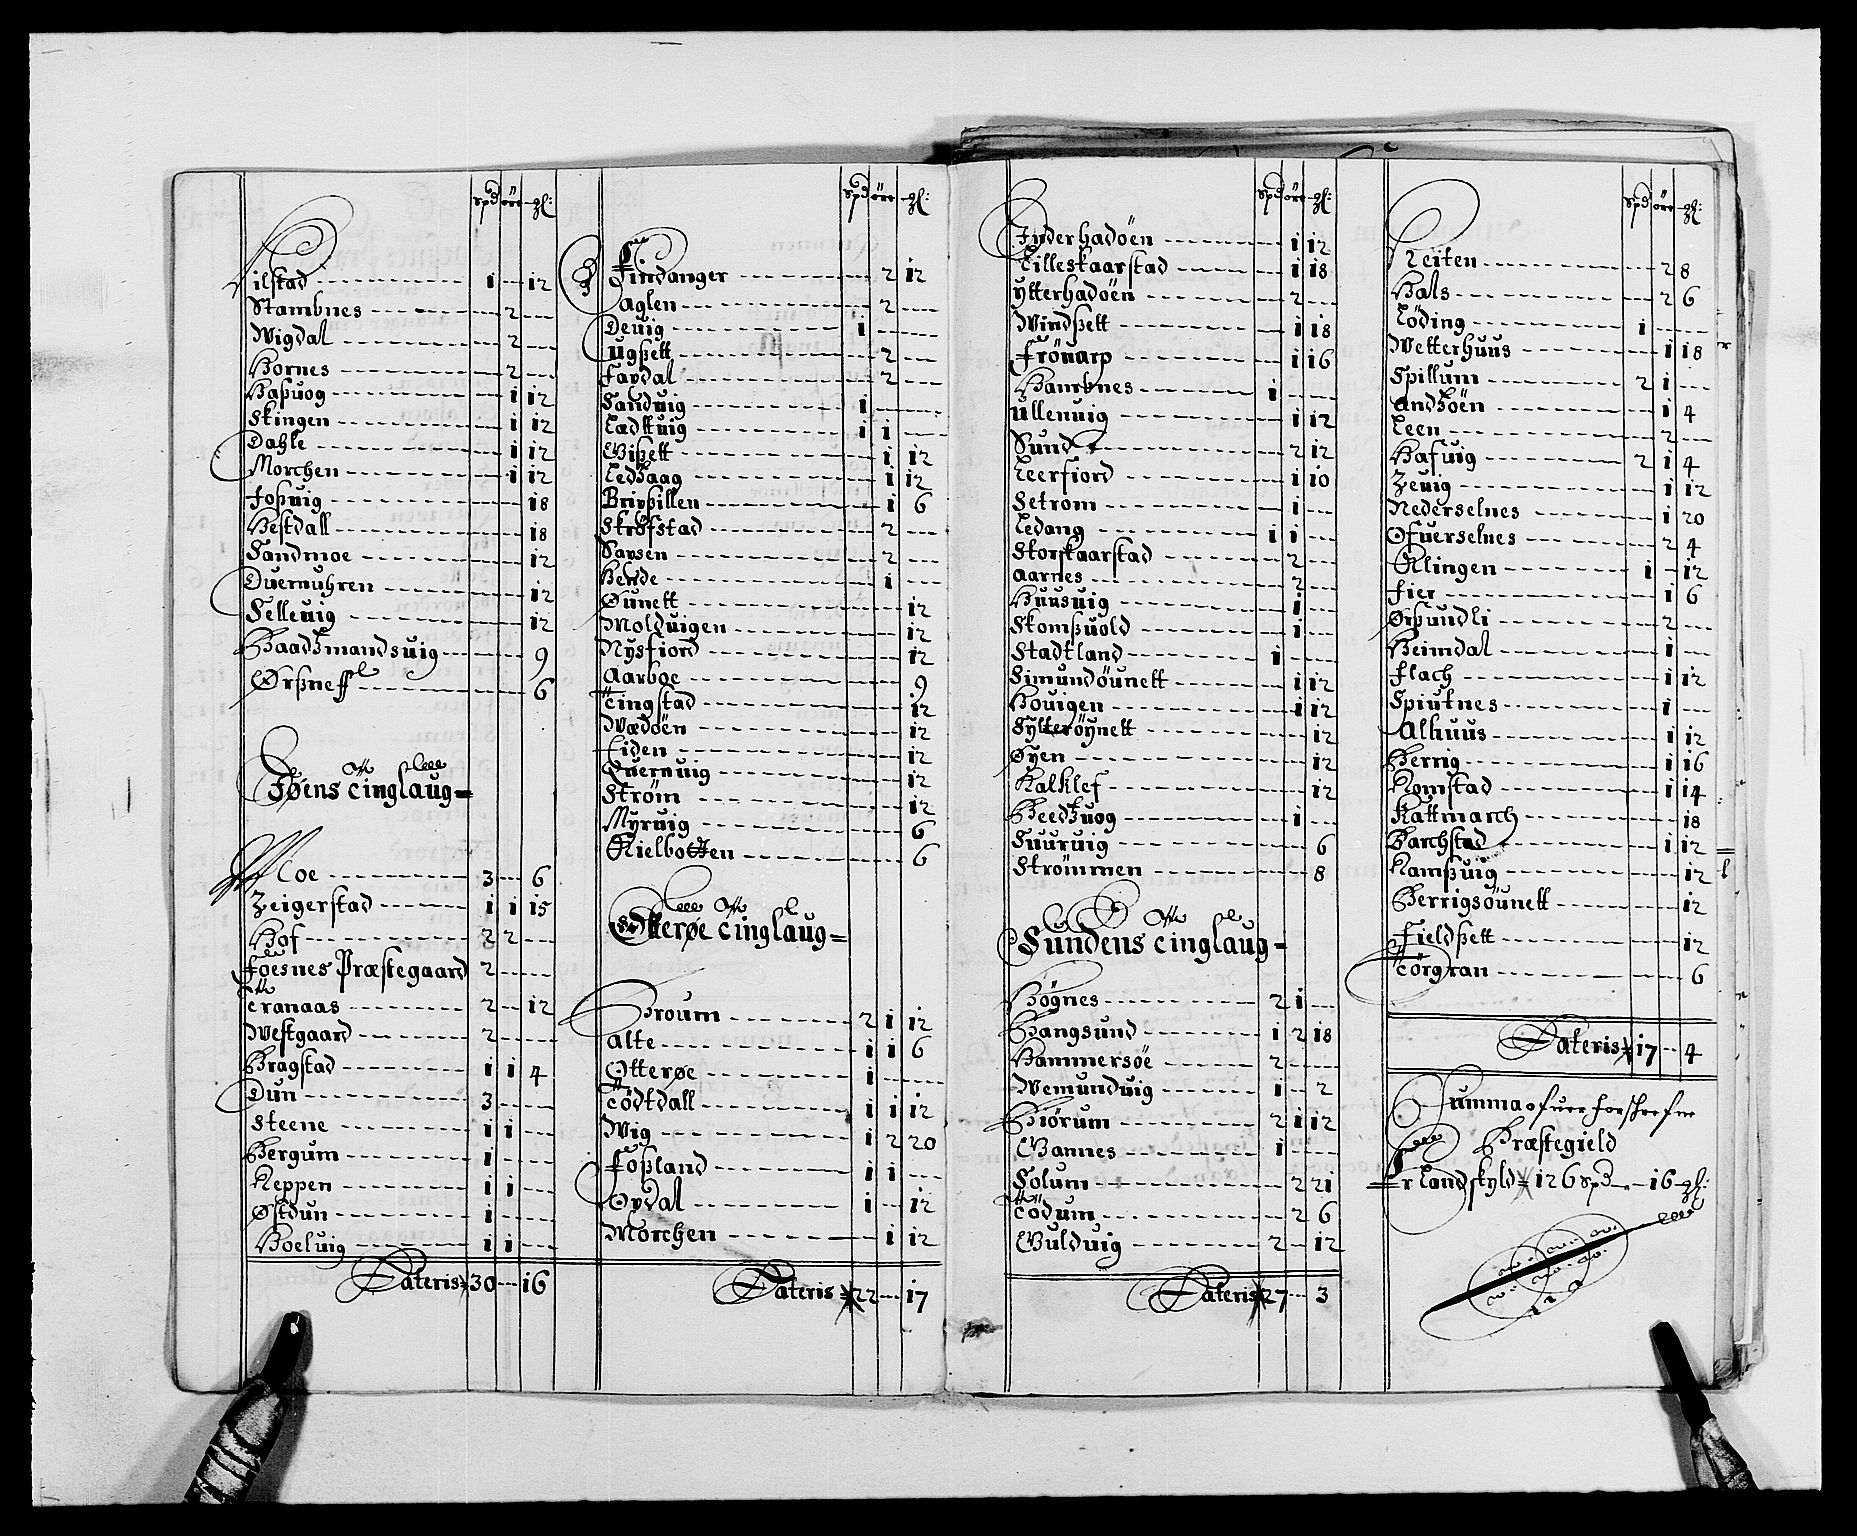 Spd öre ʒl:
ilstad 1 - 12
Stambnes 2
Wigdal 2
Hornes 2
Haßuog 1 12
Skingen 1 12
Dahle 1 12
Morchen 1 12
Foßuig 18
Hestdall 18
Sandmoe 12
Duernuhren 12
Selleuig 12
Baadzmandsuig 9
Ørßneß 6
Føens Tinglaug=
Moe 3 - 6
Zeigerstad 1 1 15
Hof 2 2
Föesnes Præstegaard 2
Tranaas 2 - 12
Westgaard 2
Bragstad 1 1 4
Dun 3
Steene 1 1
Bergum 1
Keppen 1 1
Østdun 1
Hoeluig 1 1
Lateris 30 - 16
Spd öre ʒl:
Findanger 2 12
aglen 2
Deuig 1
ugßett 2
Faudal 2
Sanduig 1
Lædtuig 1 1
Wißett 1 12
Ledzaag 1 12
Brixßillen 1 6
Skrofstad 2
Sausen 2
Hende 1
Øunett 12
Molduigen 12
Nysfiord 12
Aarboe 9
Tingstad 12
Wædöen 12
Eiden 12
Quernuig 12
Ström 12
Myruig 6
Kielbotten 6
Otterøe Tinglaug=
Broum 2 1 12
Alte 1 1 6
Otterøe 1
Tödtdall 1 1 12
Wig 1 2 20
Foßland 1 1
Øydal 1 - 12
Morchen 1 12
Lateris 22 - 17
Spd öre ʒl:
Inderhadöen 1 12
Lilleskaarstad 1 18
Ytterhadöen 2
Windßett 1 18
Frönarp 1 16
Hambnes 1
Ullenuig 1 12
Sund 2 12
Leerfiord 1 10
Setrom 1
Ledang 1 1
Storskaarstad 2
Aarnes 2
Huusuig 1
Skomßuold 1
Stadtland 1
Simundöunett 1 12
Houigen 1 12
Sytteröynett 12
Øyen 12
Kalklef 12
Beedzuog 1
Suuruig 6
Strömmen 8
Sundens Tinglaug=
Högnes 2 1
Bangsund 1 2 18
Hammersöe 2
Wemunduig 1 - 2
Biörum 2 1 12
Wannes 1
Solum 2 21
Tödum 2 6
Gulduig 2 - 12
Lateris 27 - 3
Spd öre ʒl:
Reiten 2 8
Hals 2 6
Löding 1
Wetterhuus 1 18
Spillum 2 1
Andzöen 1 4
Leen 2
Hafuig 2 1 4
Zeuig 1 12
Nederselnes 1 20
Ofuerselnes 2 4
Klingen 1 - 12
Fier 1 6
Ørßundli 2
Heimdal 1
Flach 1 12
Spiutnes 1
Alhuus 1 12
Berrig 1 16
Komstad 1 14
Kattmarch 18
Barchstad 1 12
Kamßuig 12
Berrigsöunett 12
Fieldßett 12
Törgran 6
Lateris 17 - 4
Summa ofuer forschrefne
Præstegield
Er Landskyld = 126 spd - 16 ʒl: